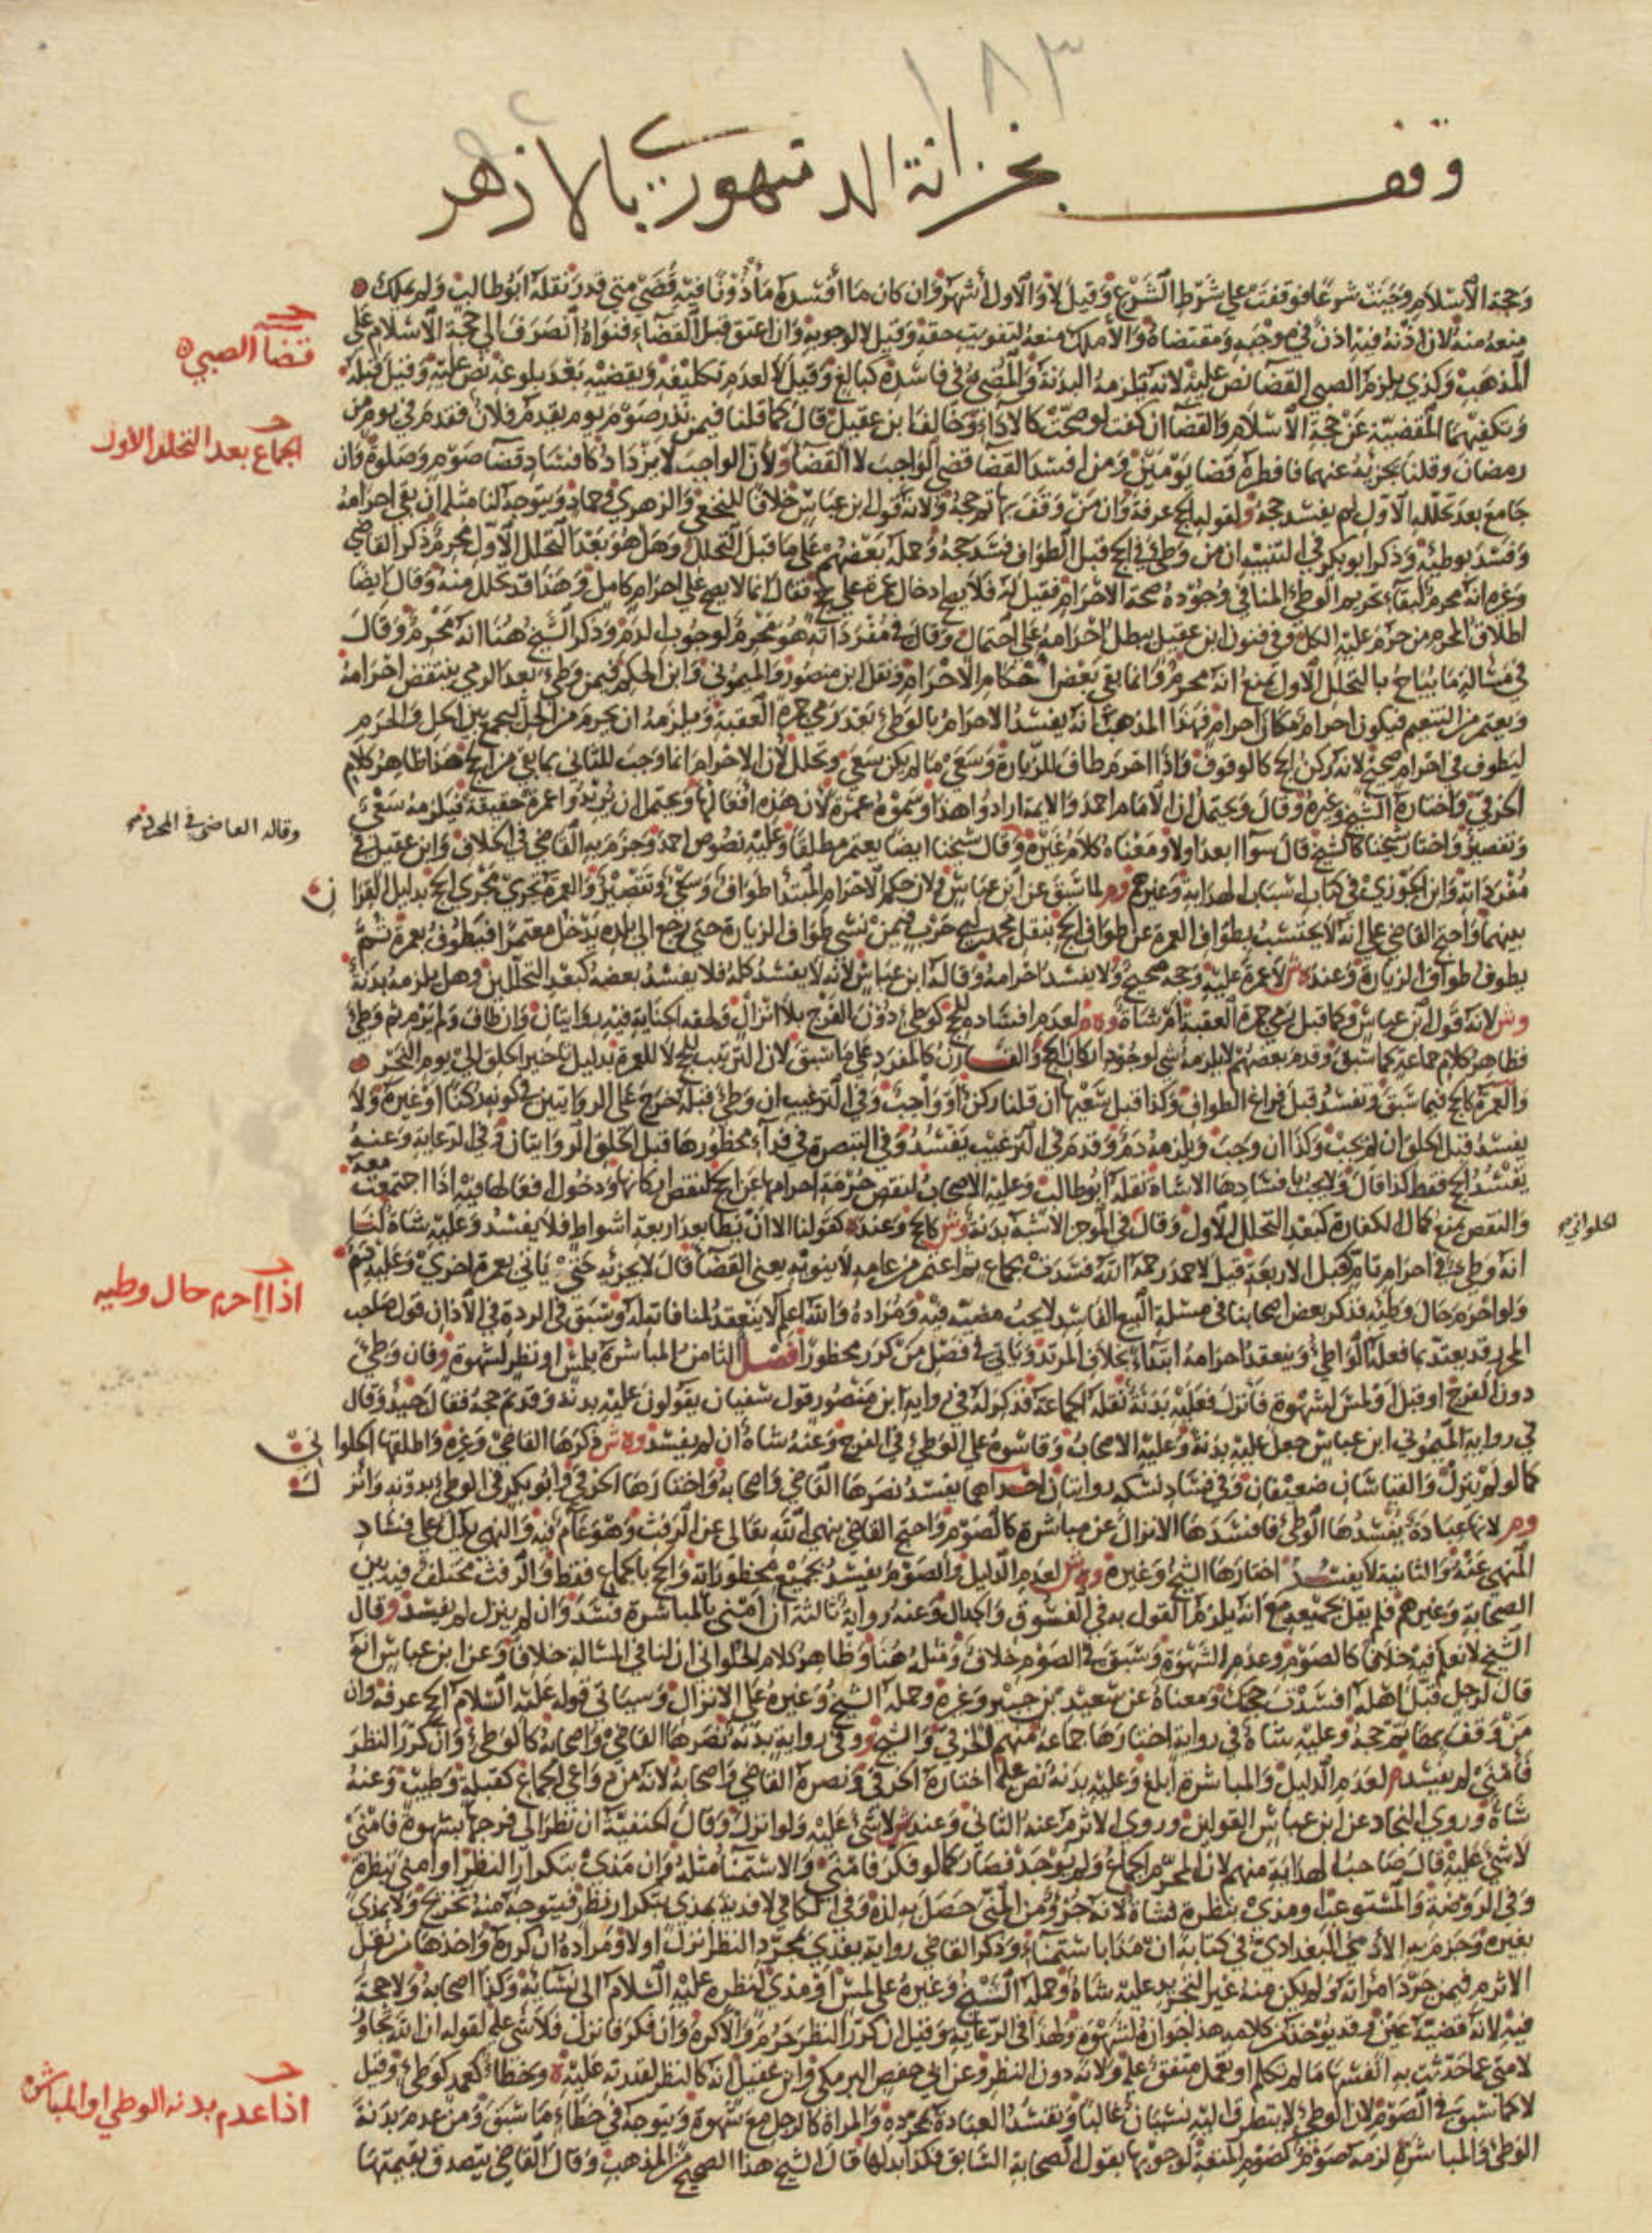 ١٨٣
وقف بخزانة الدمنهوري بالازهر
وحجة الاسلام وجبت شرعا فوقفت على شرط الشرع وقيل لا والاول أشهر وان كان ما أفسده مأذونا فيه قضى متى قدر نقله ابوطالب ولم يملك
منعه منه لان اذنه فيه اذن في موجبه ومقتضاه والا ملك منعه لتفويت حقه وقيل لا لوجوبه وان اعتق قبل القضاء فنواه انصرف الى حجة الاسلام على
المذهب وكذي يلزم الصبي القضا نص عليه لانه تلزمه البدنة والمضي في فاسده كبالغ وقيل لا لعدم تكليفه ويقضيه بعد بلوغه نص عليه وقيل قبله
قضآ الصبي
وتكفيهما المقضية عن حجة الاسلام والقضآ ان كفت لو صحت كالاداء وخالف ابن عقيل قال كما قلنا فيمن نذر صوم يوم يقدم فلان فقدم في يوم من
الجماع بعد التحلل الاول
رمضان وقلنا يجزيه عنهما فافطره قضا يومين ومن افسد القضا قضى الواجب لا القضا ولان الواجب لا يزداد كافساد قضا صوم وصلوة وان
جامع بعد تحلله الاول لم يفسد حجه ولقوله الحج عرفة وان من وقف بها تم حجه ولانه قول ابن عباس خلافا للنخعي والزهري وحماد ويتوجه لنا مثله ان بقي احرامه
وفسد بوطئه وذكر ابو بكر في التنبيه ان من وطئ في الحج قبل الطواف فسد حجه وحمله بعضهم على ما قبل التحلل وهل هو بعد التحلل الاول محرم ذكر القاضي
وغيره انه محرم لبقاء تحريم الوطئ المنافي وجوده صحة الاحرام فقيل له فلا يصح ادخال عمرة على حج فقال انما لا يصح على احرام كامل وهذا قد تحلل منه وقال ايضا
اطلاق المحرم من حرم عليه الكل وفي فنون ابن عقيل يبطل احرامه على احتمال وقال في مفرداته هو محرم لوجوب الدم وذكر الشيخ هنا انه محرم وقال
في مسالة ما يباح بالتحلل الاول يمنع انه محرم وانما بقي بعض احكام الاحرام ونقل ابن منصور والميموني وابن الحكم فيمن وطئ بعد الرمي ينتقض احرامه
ويعتمر من التنعيم فيكون احرام مكان احرام فهذا المذهب انه يفسد الاحرام بالوطئ بعد رمي جمرة العقبة ويلزمه ان يحرم من الحل ليجمع بين الحل والحرم
ليطوف في احرام صحيح لانه ركن الحج كالوقوف واذا احرم طاف للزيارة وسعى ما لم يكن سعى وتحلل لان الاحرام انما وجب للثاني بما بقي من الحج هذا ظاهر كلام
الخرقي واختاره الشيخ وغيره وقال ويحتمل ان الامام احمد والايمة ارادوا هذا وسموه عمرة لان هذه افعالها ويحتمل ان يريدوا عمرة حقيقة فيلزمه سعي
وقاله القاضي في المجرد
وتقصير واختار شيخنا كالشيخ قال سوآ ابعد اولا ومعناه كلام غيره وقال شيخنا ايضا يعتمر مطلقا وعليه نصوص احمد وجزم به القاضي في الخلاف وابن عقيل في
مفرداته وابن الجوزي في كتاب اسباب الهداية وغيرهم وم لما سبق عن ابن عباس ولان حكم الاحرام المبتدأ طواف وسعي وتقصير والعمرة تجري مجرى الحج بدليل القران
بينهما واحتج القاضي على انه لا يحتسب بطواف العمرة عن طواف الحج بنقل محمد بن ابي حرب فيمن نسي طواف الزيارة حتى رجع الى بلده يدخل معتمرا فيطوف بعمرة ثم
يطوف طواف الزيارة وعنده ش لا عمرة عليه وحجه صحيح ولا يفسد احرامه وقاله ابن عباس لانه لا يفسد كله فلا يفسد بعضه كبعد التحللين وهل يلزمه بدنة
وش لانه قول ابن عباس وكما قبل رمي جمرة العقبة ام شاة وم لعدم افساده للحج كوطئ دون الفرج بلا انزال ولخفة الجناية فيه روايتان وان طاف ولم يرم ثم وطئ
فظاهر كلام جماعة كما سبق وقدم بعضهم لا يلزمه شئ لوجود اركان الحج والقارن كالمفرد على ما سبق لان الترتيب للحج لا للعمرة بدليل تاخير الحلق الى يوم النحر
والعمرة كالحج فيما سبق وتفسد قبل فراغ الطواف وكذا قبل سعيها ان قلنا ركن او واجب وفي الترغيب ان وطئ قبله خرج على الروايتين في كونه ركنا او غيره ولا
يفسد قبل الحلق ان لم يجب وكذا ان وجب ويلزمه دم وقدم في الترغيب يفسد وفي التبصرة في فدآء محظورها قبل الحلق الروايتان وفي الرعاية وعنه
يفسد الحج فقط كذا قال ولا يجب بافسادها الا شاة نقله ابوطالب وعليه الاصحاب لنقص حرمة احرامها عن الحج لنقص اركانها ودخول افعالها فيه اذا اجتمعت معه
والنقص يمنع كمال الكفارة كبعد التحلل الاول وقال في الموجز الاشبه بدنة وش كالحج وعنده كقولنا الا ان يطا بعد اربعة اشواط فلا يفسد وعليه شاة لنا
الحلواني
انه وطئ في احرام تام كقبل الاربعة قيل لاحمد رحمه الله فسدت بجماع ثم اعتمر من عامه لا ينويه يعني القضآ قال لا يجزئه حتى ياتي بعمرة اخرى وعليه دم
اذا احرم حال وطيه
ولو احرم حال وطئه فذكر بعض اصحابنا في مسئلة البيع الفاسد لا يجب مضيه فيه ومراده والله اعلم لا ينعقد لمنافاته له وسبق في الردة في الاذان قول صاحب
المحرر قد يعتد بما فعله الواطئ وينعقد احرامه ابتدآء بخلاف المرتد وياتي في فصل من كرر محظورا فصل الثامن المباشرة بلمس او نظر لشهوة فان وطئ
دون الفرج او قبل او لمس لشهوة فانزل فعليه بدنة نقله الجماعة فذكر له في رواية ابن منصور قول سفيان يقولون عليه بدنة وقد تم حجه فقال جيد وقال
في رواية الميموني ابن عباس جعل عليه بدنة وعليه الاصحاب وقاسوه على الوطئ في الفرج وعنه شاة ان لم يفسد وه ش ذكرها القاضي وغيره واطلقها الحلواني
كما لو لم ينزل والقياسان ضعيفان وفي فساد نسكه روايتان احداهما يفسد نصرها القاضي واصحابه واختارها الخرقي وابو بكر في الوطئ بدونه وانزل
وم لانها عبادة يفسدها الوطئ فافسدها الانزال عن مباشرة كالصوم واحتج القاضي بنهي الله تعالى عن الرفث وهو عام فيه والنهي يدل على فساد
المنهي عنه والثانية لا يفسد اختارها الشيخ وغيره وه ش لعدم الدليل والصوم يفسد بجميع محظوراته والحج بالجماع فقط والرفث مختلف فيه بين
الصحابة وغيرهم فلم يقل بجميعه مع انه يلزم القول به في الفسوق والجدال وعنه رواية ثالثة ان امنى بالمباشرة فسد وان لم ينزل لم يفسد وقال
الشيخ لا نعلم فيه خلافا كالصوم وعدم الشهوة وسبق في الصوم خلاف ومثله هنا وظاهر كلام الحلواني ان لنا في المسالة خلافا وعن ابن عباس انه
قال لرجل قبل اهله افسدت حجك ومعناه عن سعيد بن جبير وغيره وحمله الشيخ وغيره على الانزال وسياتي قوله عليه السلام الحج عرفة وان
من وقف بها تم حجه وعليه شاة في رواية اختارها جماعة منهم الخرقي والشيخ وفي رواية بدنة نصرها القاضي واصحابه كالوطئ وان كرر النظر
فامنى لم يفسد م لعدم الدليل والمباشرة ابلغ وعليه بدنة نص عليه اختاره الخرقي ونصره القاضي واصحابه لانه من دواعي الجماع كقبلة وطيب وعنه
شاة وروى النجاد عن ابن عباس القولين وروى الاثرم عنه الثاني وعند ش لا شئ عليه ولو انزل وقال الحنفية ان نظر الى فرجها بشهوة فامنى
لا شئ عليه قال صاحب الهداية منهم لان المحرم الجماع ولم يوجد فصار كما لو فكر فامنى والاستمنا مثله وان مذى بتكرار النظر او امنى بنظرة
وفي الروضة والمستوعب او مذى بنظرة لشاة لانه جزؤ من المني حصل به لذة وفي الكافي لا فدية بمذي بتكرار نظر فيتوجه منه تخريج ولا بمذي
بغيره وجزم به الآدمي البغدادي في كتابه ان مذا باستمنآء وذكر القاضي رواية يفدي بمجرد النظر انزل اولا ومراده ان كرره واخذها من نقل
الاثرم فيمن جرد امراته ولم يكن منه غير التجريد عليه شاة وحمله الشيخ وغيره على لمس او مذي لنظره عليه السلام الى نسائه وكذا اصحابه ولا حجة
فيه لانه قضية عين وقد يوخذ من كلامه هذا جوازه لشهوة ولهذا في الرعاية وقيل ان كرر النظر حرم والا كره وان فكر فانزل فلا شئ عليه لقوله ان الله تجاوز
لامتي عما حدثت به انفسها ما لم تكلم او تعمل متفق عليه ولانه دون النظر وعن ابي حفص البرمكي وابن عقيل انه كالنظر لقدرته عليه وخطاه كعمد كوطئ وقيل
اذا عدم بدنه الوطي او المباشرة
لا كما سبق في الصوم لان الوطئ لا يتطرق اليه نسيان غالبا وتفسد العبادة بمجرده والمراة كالرجل مع شهوة ويتوجه في خطاه ما سبق ومن عدم بدنة
الوطئ والمباشرة لزمه صوم كصوم المتعة لوجوبها بقول الصحابة السابق فكذا بدلها قال الشيخ هذا الصحيح من المذهب وقال القاضي يتصدق بقيمتها